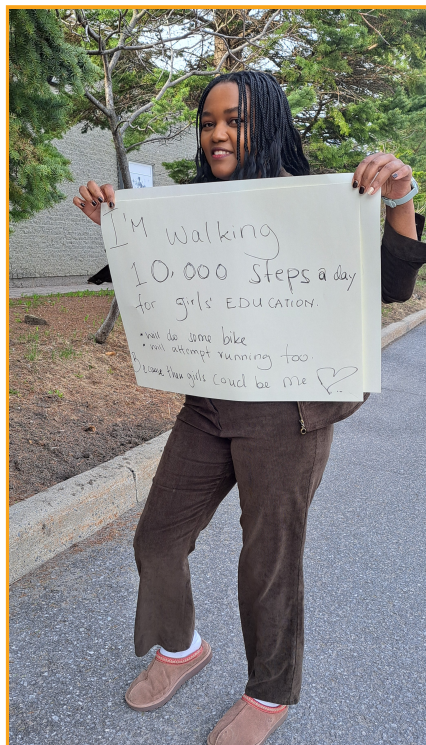 I'M walking
10,000 steps a day
for girls' EDUCATION.
• will do some bike
• will attempt running too.
Because then girls could be me